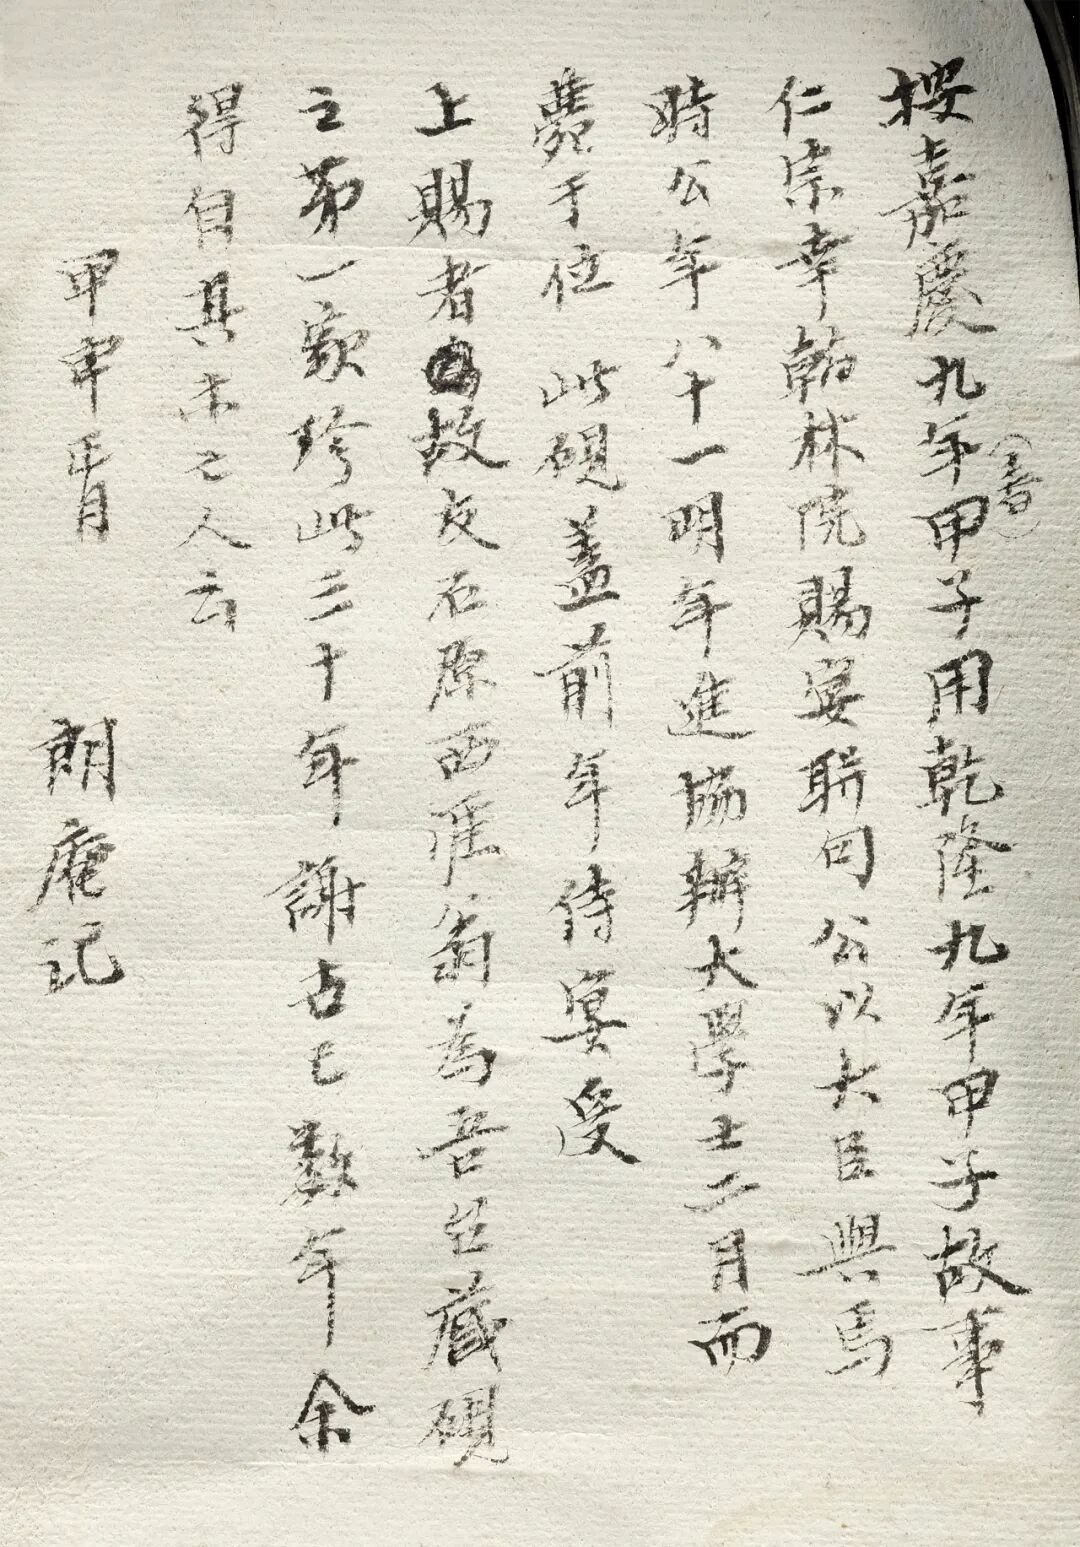 按嘉慶九年甲子用乾隆九年甲子故事
仁宗幸翰林院賜宴聯句公以大臣與焉
時公年八十一明年進協辦大學士二月而
薨于位 此硯蓋前年侍宴受
上賜者故友石原西涯翁為吾邑藏硯
之第一家珍此三十年謝古已數年余
得自其未亡人云
甲申 月 朗庵記